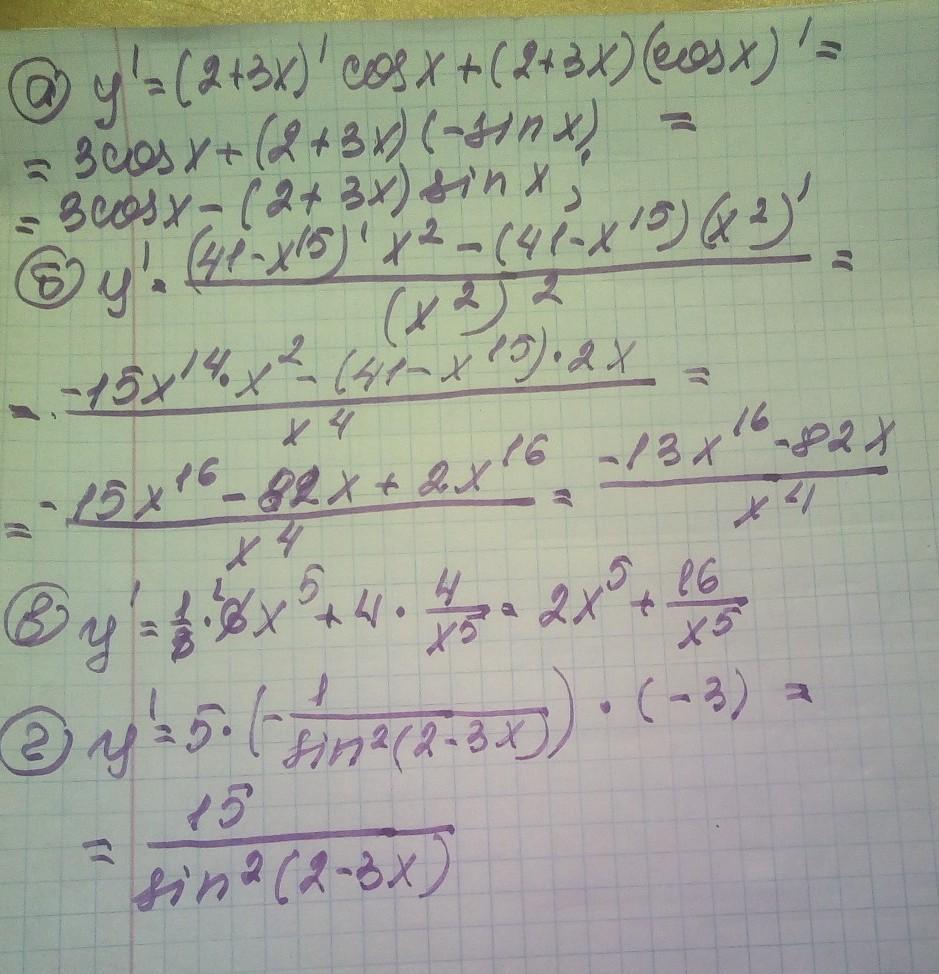 а) y' = (2+3x)' cos x + (2+3x)(cos x)' =
= 3cos x + (2+3x)(-sin x) =
= 3cos x - (2+3x) sin x ;
б) y' = ((41-x^15)' x^2 - (41-x^15)(x^2)')/((x^2)^2) =
= (-15x^14 · x^2 - (41-x^15) · 2x)/(x^4) =
= (-15x^16 - 82x + 2x^16)/(x^4) = (-13x^16 - 82x)/(x^4)
в) y' = 1/3 · 6x^5 + 4 · 4/x^5 = 2x^5 + 16/x^5
г) y' = 5 · (- 1/(sin^2(2-3x))) · (-3) =
= 15/(sin^2(2-3x))